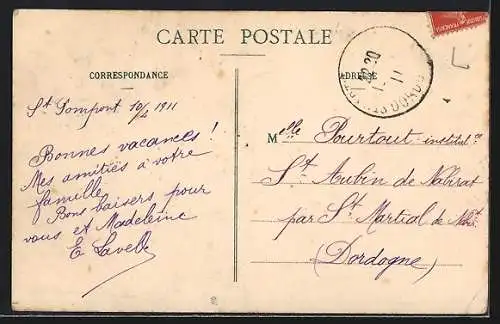 CARTE POSTALE
CORRESPONDANCE
ADRESSE
St Pompont 10/4 1911
Bonnes vacances !
Mes amitiés à votre
famille
Bons baisers pour
vous et Madeleine
E
Melle Pourtout institce
St Aubin de Nabirat
par St Martial de
(Dordogne)